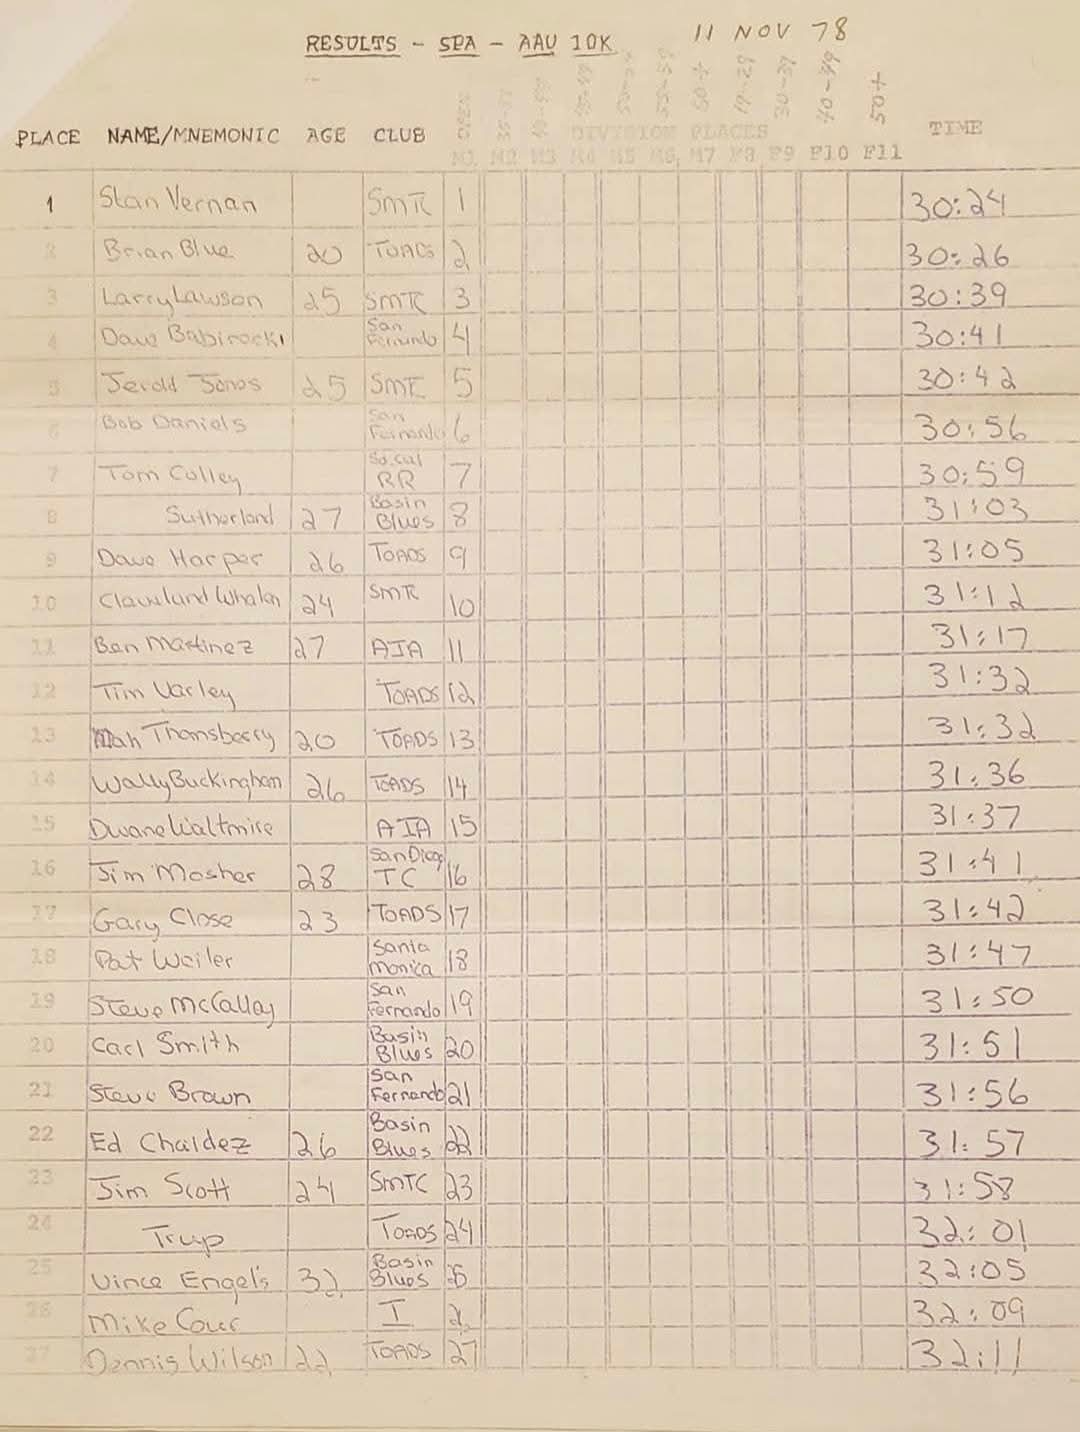 RESULTS - SPA - AAU 10K 11 NOV 78
PLACE NAME/MNEMONIC AGE CLUB OPEN 40-49 50-54 55-59 50+ 19-29 30-39 40-49 50+ TIME
DIVISION PLACES
M1 M2 M3 M4 M5 M6 M7 F8 F9 F10 F11
1 Stan Vernan SMTC 1 30:24
2 Brian Blue 20 TOADS 2 30:26
3 Larry Lawson 25 SMTC 3 30:39
4 Dave Babirocki San Fernando 4 30:41
5 Jerold Jones 25 SMTC 5 30:42
6 Bob Daniels San Fernando 6 30:56
7 Tom Colley So.Cal RR 7 30:59
8 Sutherland 27 Basin Blues 8 31:03
9 Dave Harper 26 TOADS 9 31:05
10 Cleveland Whalen 24 SMTC 10 31:12
11 Ben Martinez 27 AIA 11 31:17
12 Tim Varley TOADS 12 31:32
13 Thornsberry 20 TOADS 13 31:32
14 Wally Buckingham 26 TOADS 14 31:36
15 Dwane Waltmire AIA 15 31:37
16 Jim Mosher 28 San Diego TC 16 31:41
17 Gary Close 23 TOADS 17 31:42
18 Pat Weiler Santa Monica 18 31:47
19 Steve McCalley San Fernando 19 31:50
20 Carl Smith Basin Blues 20 31:51
21 Steve Brown San Fernando 21 31:56
22 Ed Chaidez 26 Basin Blues 22 31:57
23 Jim Scott 24 SMTC 23 31:58
24 Trup TOADS 24 32:01
25 Vince Engel's 32 Basin Blues 32:05
26 Mike Cour I 2 32:09
27 Dennis Wilson 22 TOADS 27 32:11